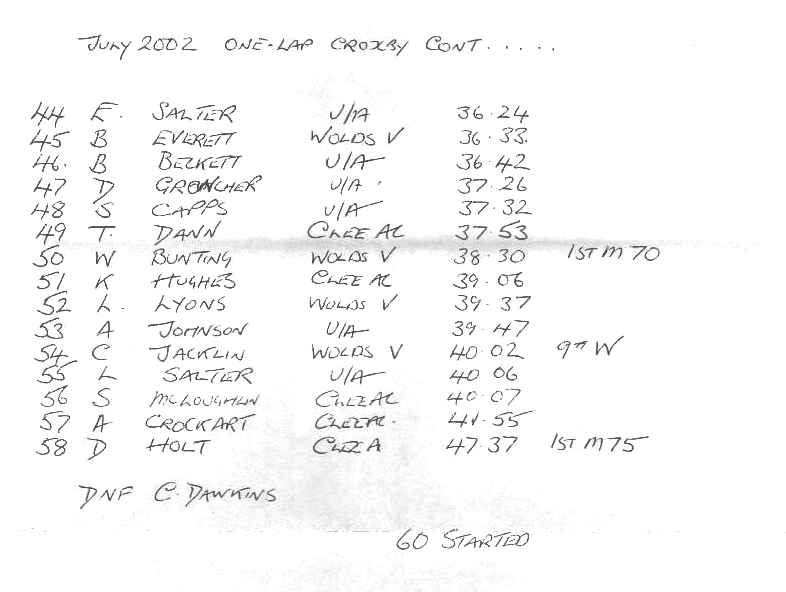 JULY 2002 ONE-LAP CROXBY CONT.....
44 E. SALTER U/A 36.24
45 B EVERETT WOLDS V 36.33.
46. B BECKETT U/A 36.42
47 D GROWCHER U/A. 37.26
48 S CAPPS U/A 37.32
49 T. DANN CLEE AC 37.53
50 W BUNTING WOLDS V 38.30 1ST M 70
51 K HUGHES CLEE AC 39.06
52 L. LYONS WOLDS V 39.37
53 A JOHNSON U/A 39.47
54 C JACKLIN WOLDS V 40.02 9TH W
55 L SALTER U/A 40 06
56 S MCLOUGHLIN CLEE AC 40.07
57 A CROCKART CLEE AC. 41.55
58 D HOLT CLEE A 47.37 1ST M 75
DNF C. DAWKINS
60 STARTED